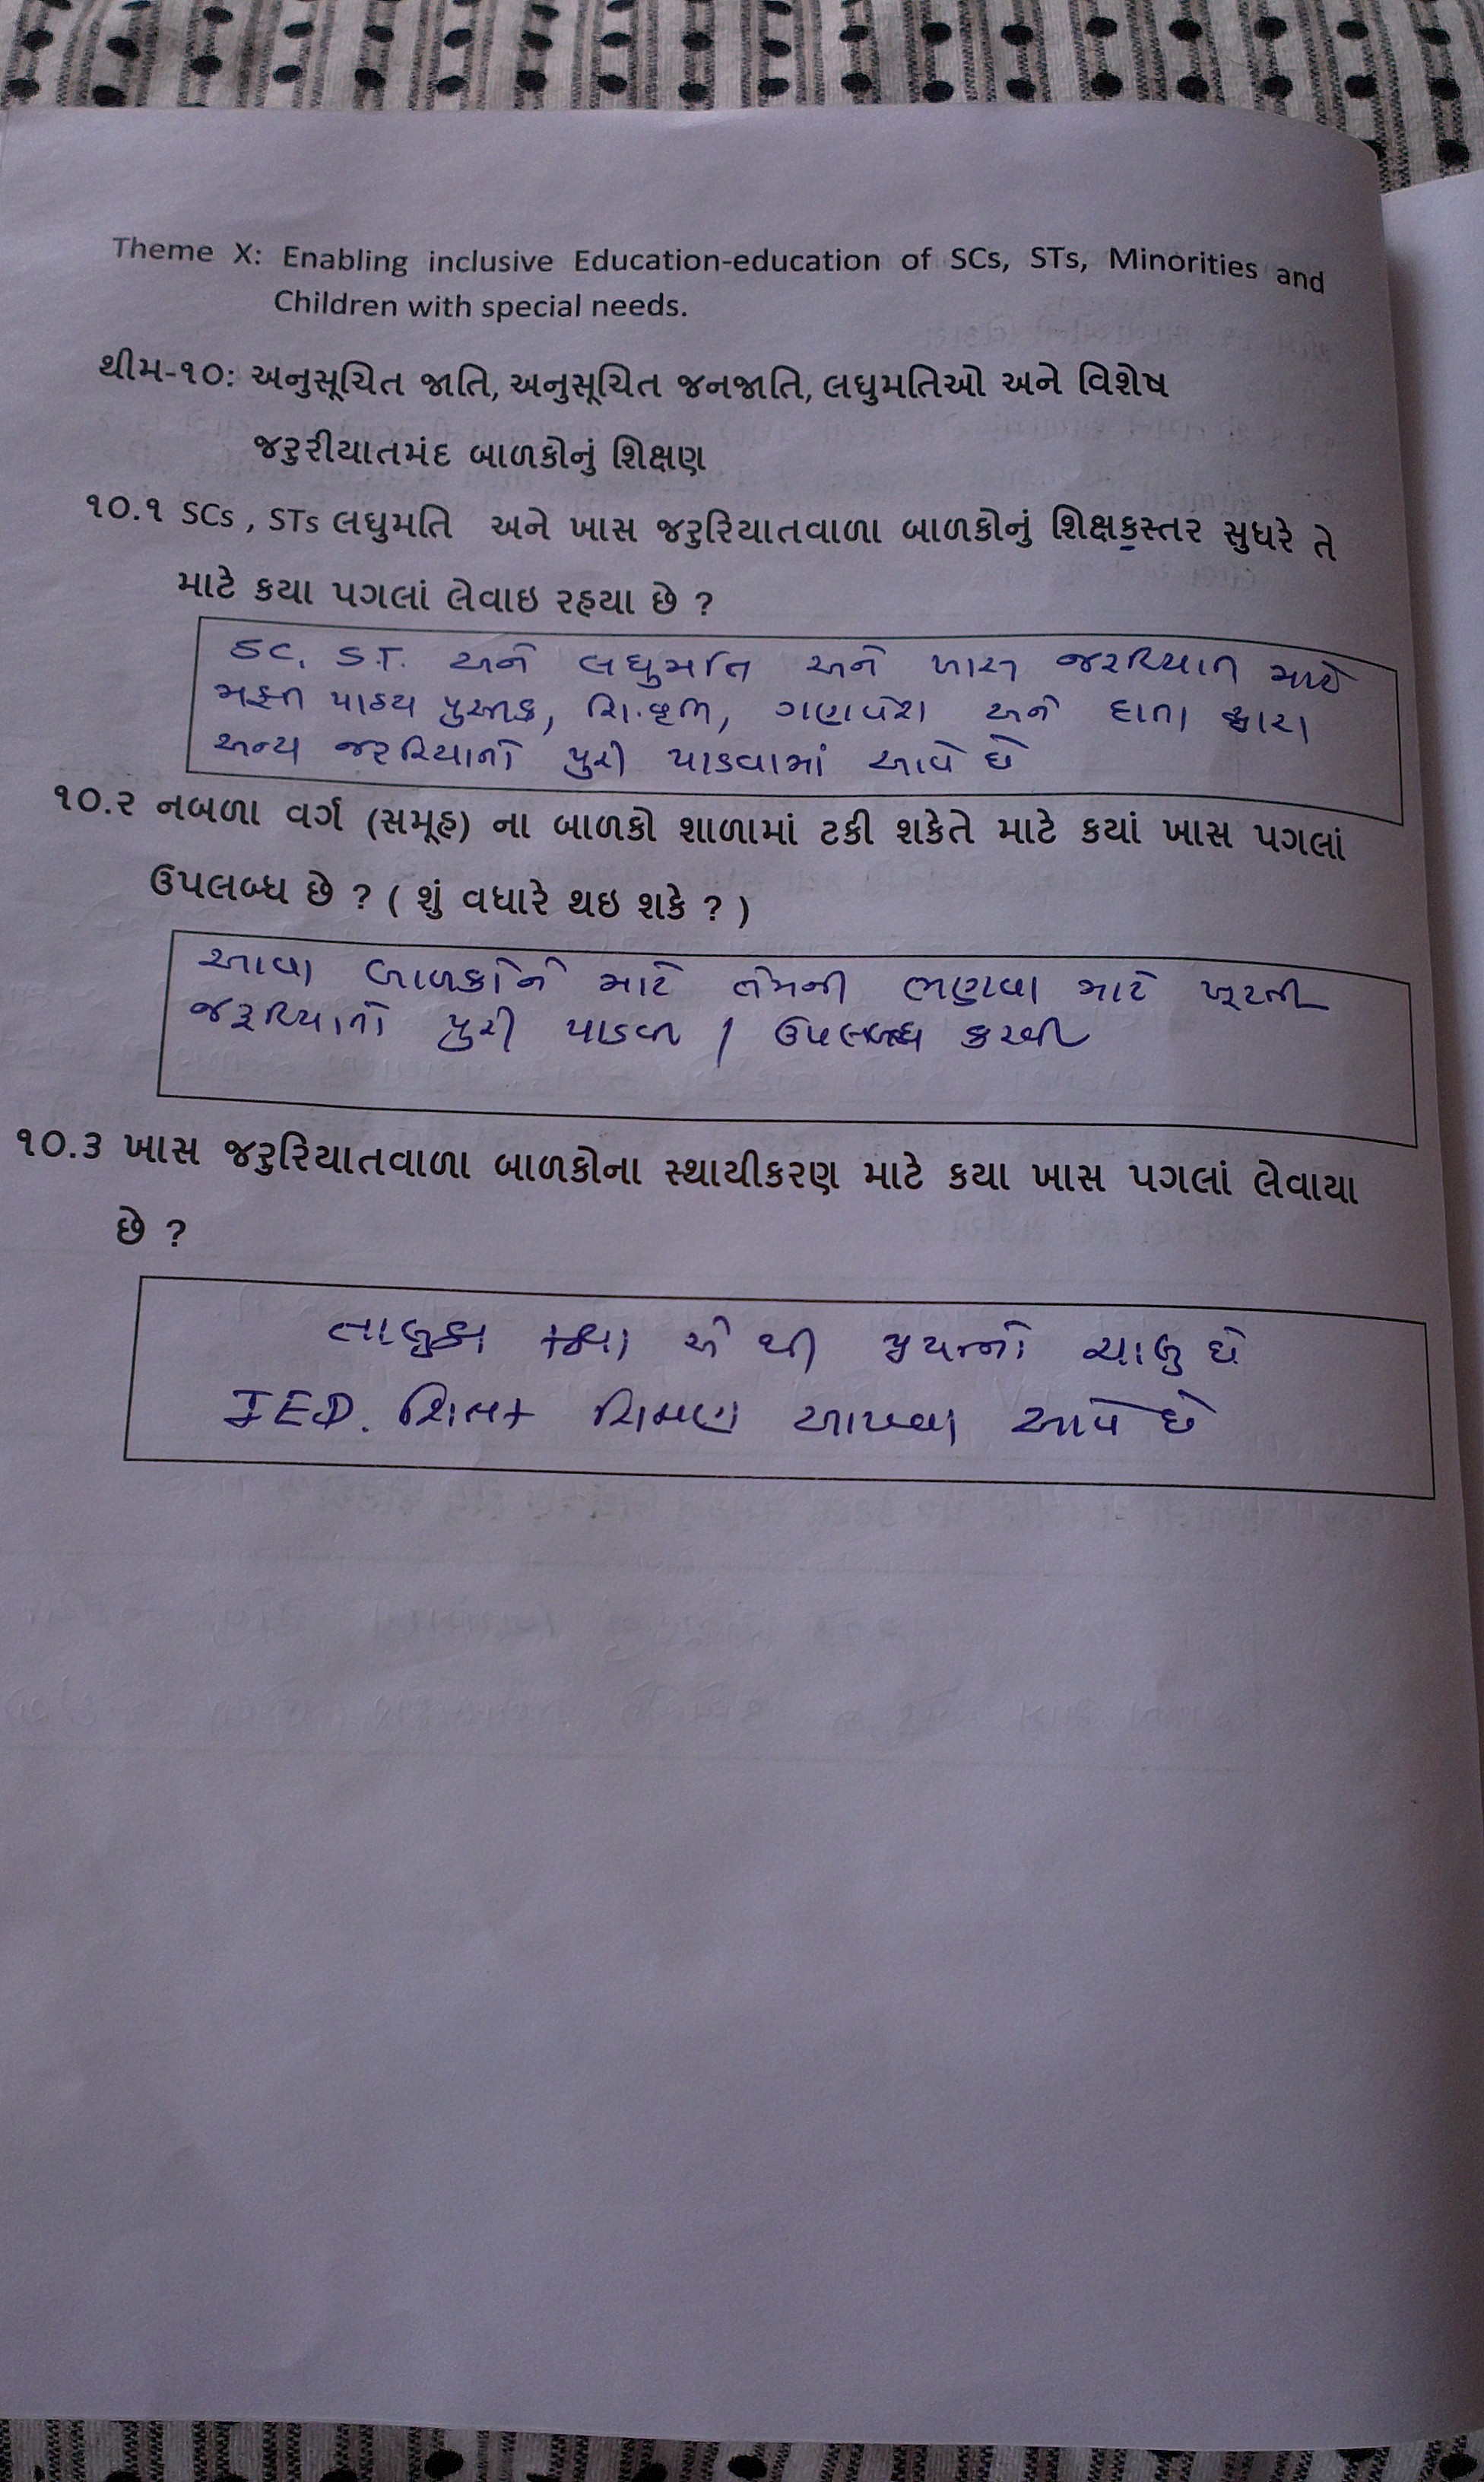 Theme X: Enabling inclusive Education-education of SCs, STs, Minorities and
Children with special needs.
થીમ-૧૦: અનુસૂચિત જાતિ, અનુસૂચિત જનજાતિ, લઘુમતિઓ અને વિશેષ
જરુરીયાતમંદ બાળકોનું શિક્ષણ
૧૦.૧ SCs , STs લઘુમતિ અને ખાસ જરુરિયાતવાળા બાળકોનું શિક્ષકસ્તર સુધરે તે
માટે કયા પગલાં લેવાઇ રહયા છે ?
SC, S.T. અને લઘુમતિ અને ખાસ જરૂરિયાત માટે
મફત પાઠય પુસ્તક, શિ.વૃતિ, ગણવેશ અને દાતા દ્વારા
અન્ય જરૂરિયાતો પુરી પાડવામાં આવે છે
૧૦.૨ નબળા વર્ગ (સમૂહ) ના બાળકો શાળામાં ટકી શકેતે માટે કયાં ખાસ પગલાં
ઉપલબ્ધ છે ? ( શું વધારે થઇ શકે ? )
આવા બાળકોને માટે તેમની ભણવા માટે ખૂટતી
જરૂરિયાતો પુરી પાડવી / ઉપલબ્ધ કરવી
૧૦.૩ ખાસ જરુરિયાતવાળા બાળકોના સ્થાયીકરણ માટે કયા ખાસ પગલાં લેવાયા
છે ?
તાલુકા કક્ષા એ થી પ્રયત્નો ચાલુ છે
IED. શિક્ષક શિક્ષણ આપવા આવે છે